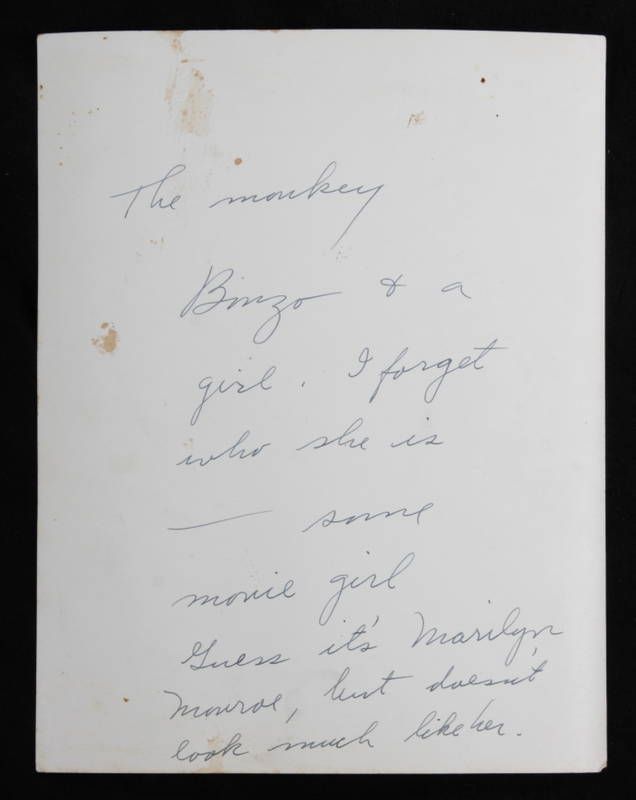 The monkey
Binzo & a
girl. I forget
who she is
— some
movie girl
Guess it's Marilyn
Monroe, but doesn't
look much like her.